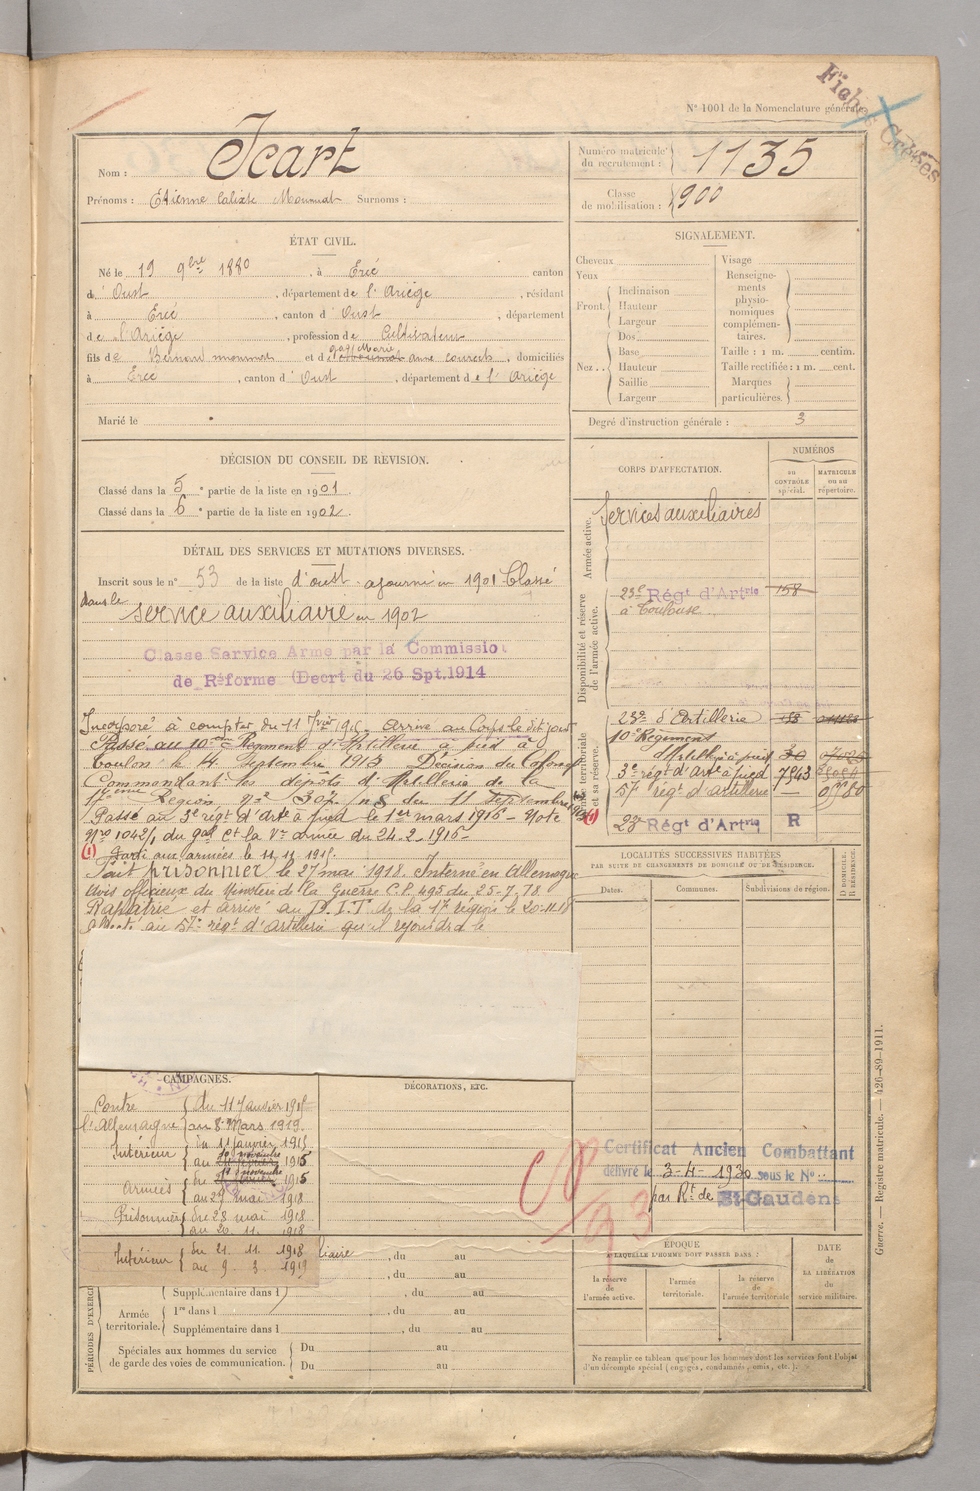 N° 1001 de la Nomenclature générale.
Fiches Créées
Nom : Icart
Prénoms : Etienne Calixte Surnoms :
Numéro matricule du recrutement : 1135
Classe de mobilisation : 1900
ÉTAT CIVIL.
Né le 19 9bre 1880, à Ercé canton
d'Oust, département de l'Ariège, résidant
à Ercé, canton d'Oust, département
de l'Ariège, profession de Cultivateur
fils de Bernard et d Marie anne, domiciliés
à Ercé, canton d'Oust, département de l'Ariège
Marié le
SIGNALEMENT.
Cheveux
Yeux
Front. Inclinaison
Hauteur
Largeur
Nez.. Dos
Base
Hauteur
Saillie
Largeur
Visage
Renseignements physionomiques complémentaires.
Taille : 1 m. centim.
Taille rectifiée : 1 m. cent.
Marques particulières.
Degré d'instruction générale : 3
DÉCISION DU CONSEIL DE REVISION.
Classé dans la 5e partie de la liste en 1901
Classé dans la 6e partie de la liste en 1902
DÉTAIL DES SERVICES ET MUTATIONS DIVERSES.
Inscrit sous le n° 53 de la liste d'oust ajourné en 1901 Classé
dans le service auxiliaire en 1902
Classe Service Armé par la Commission
de Réforme (Decrt du 26 Spt. 1914
Incorporé à compter du 11 Jvier 1915. Arrivé au Corps le dit jour
Passé au 10e Régiment d'Artillerie à pied à
Toulon le 14 Septembre 1915 Décision du Colonel
Commandant les dépôts d'Artillerie de la
17ème Région n° 307 du 11 Septembre 1915
Passé au 3e régt d'arté à pied le 1er mars 1916 - Note
Nro 1042/1 du gal Ct la Ve armée du 24.2.1916-
(1) Parti aux armées le 11 11 1915.
Fait prisonnier le 27 mai 1918. Interné en Allemagne
Avis officieux du Ministère de la Guerre C.P. 495 du 25-7-18
Rapatrié et arrivé au D.I.T. de la 17e région le 20-11-18
Affecté au 57e régt d'artillerie qu'il rejoindra le
CORPS D'AFFECTATION.
NUMÉROS
au CONTRÔLE spécial.
MATRICULE ou au répertoire.
Armée active.
Services auxiliaires
Disponibilité et réserve de l'armée active.
23e Régt d'Artrie 158
à Toulouse
Armée territoriale et sa réserve.
23e d'Artillerie 158
10e Régiment
d'Artillerie à pied
3e régt d'arte à pied 7943
57e régt d'artillerie —
(1)
23e Régt d'Artrie R
LOCALITÉS SUCCESSIVES HABITÉES
PAR SUITE DE CHANGEMENTS DE DOMICILE OU DE RÉSIDENCE.
Dates.
Communes.
Subdivisions de région.
D DOMICILE.
R RÉSIDENCE.
CAMPAGNES.
Contre l'Allemagne du 11 Janvier 1915
au 8 Mars 1919.
Intérieur du 11 janvier 1915
au novembre 1915
Armées du novembre 1915
au 27 mai 1918
Prisonnier du 28 mai 1918
au 20 11 1918
Intérieur du 21 11 1918
au 9 3 1919
DÉCORATIONS, ETC.
Certificat Ancien Combattant
délivré le 3-4-1930 sous le N°
par Rt de St Gaudens
93
PÉRIODES D'EXERCI
liaire, du au
, du au
Supplémentaire dans l , du au
Armée territoriale. 1re dans l , du au
Supplémentaire dans l , du au
Spéciales aux hommes du service de garde des voies de communication. Du au
Du au
ÉPOQUE
À LAQUELLE L'HOMME DOIT PASSER DANS :
la réserve de l'armée active.
l'armée territoriale.
la réserve de l'armée territoriale
DATE DE LA LIBÉRATION du service militaire.
Ne remplir ce tableau que pour les hommes dont les services font l'objet
d'un décompte spécial (engagés, condamnés, omis, etc.).
Guerre. — Registre matricule. — 426-89-1911.